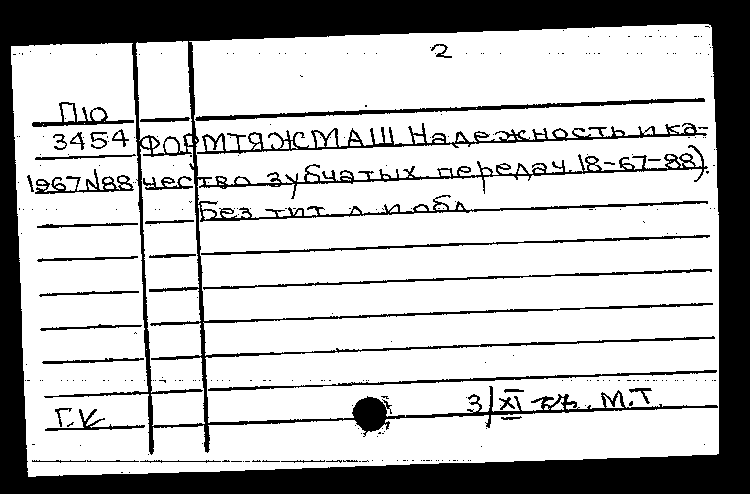 2
П10
3454 ФОРМТЯЖМАШ. Надежность и ка-
1967N88 чество зубчатых передач. 18-67-88).
Без тит. л. и обл.
Г.К. 3/XI М.Т.